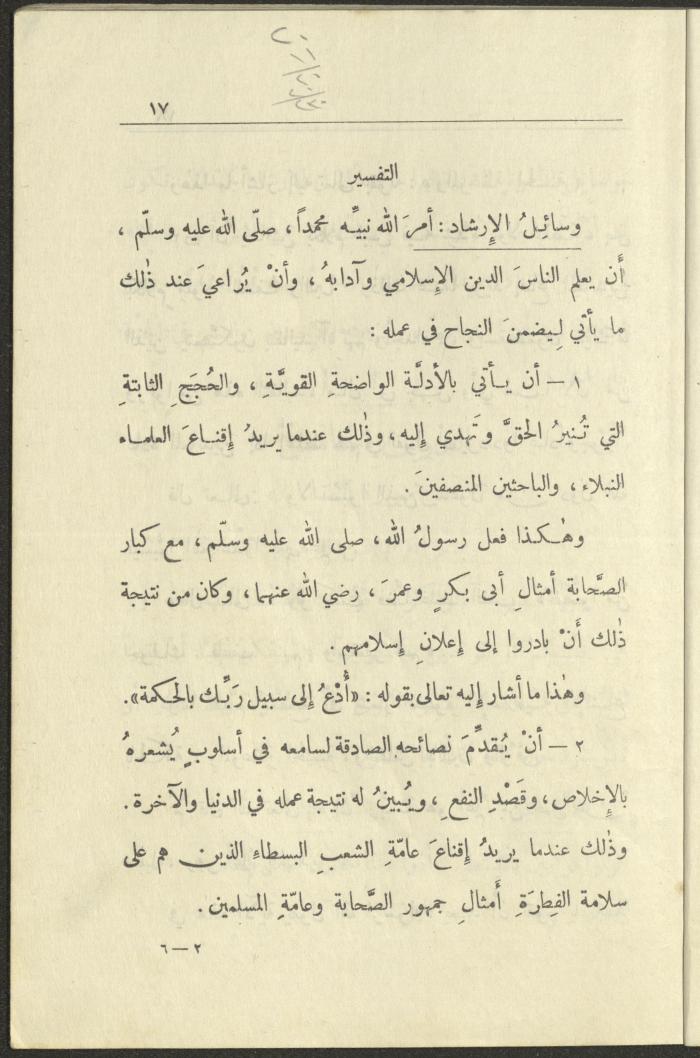 ١٧
التفسير
وسائِلُ الإِرشاد : أمرَ الله نبيَّـه محمداً ، صلّى الله عليه وسلّم ،
أَن يعلم الناسَ الدين الإِسلامي وآدابهُ ، وأنْ يُراعيَ عند ذٰلك
ما يأتي لِيضمنَ النجاح في عمله :
١ – أن يـأتي بالأدلَّـة الواضحةِ القويَّـةِ ، والحُجَجِ الثابتةِ
التي تُـنيرُ الحقَّ وتَهدي إِليه ، وذٰلك عندما يريدُ إِقنـاعَ العلمـاء
النبلاء ، والباحثين المنصفينَ .
وهٰـكـذا فعل رسولُ الله ، صلى الله عليه وسلّم ، مع كبار
الصَّحابة أمثالِ أبي بكرٍ وعمرَ ، رضي الله عنهما ، وكان من نتيجة
ذٰلك أَنْ بادروا إلى إِعلانِ إِسلامهم .
وهٰذا ما أشار إِليه تعالى بقوله : «أُدْعُ إِلى سبيل رَبِّـك بالحكمة» .
٢ – أنْ يُـقدِّمَ نصائحه الصادقة لسامعه في أسلوبٍ يُشعرهُ
بالإِخلاص ، وقَصْدِ النفعِ ، ويُـبينُ له نتيجة عمله في الدنيا والآخرة .
وذٰلك عندما يريدُ إِقناعَ عامّةِ الشعبِ البسطاءِ الذين هم على
سلامة الفِطرَةِ أَمثالِ جمهور الصَّحابة وعامّةِ المسلمين .
٢ – ٦